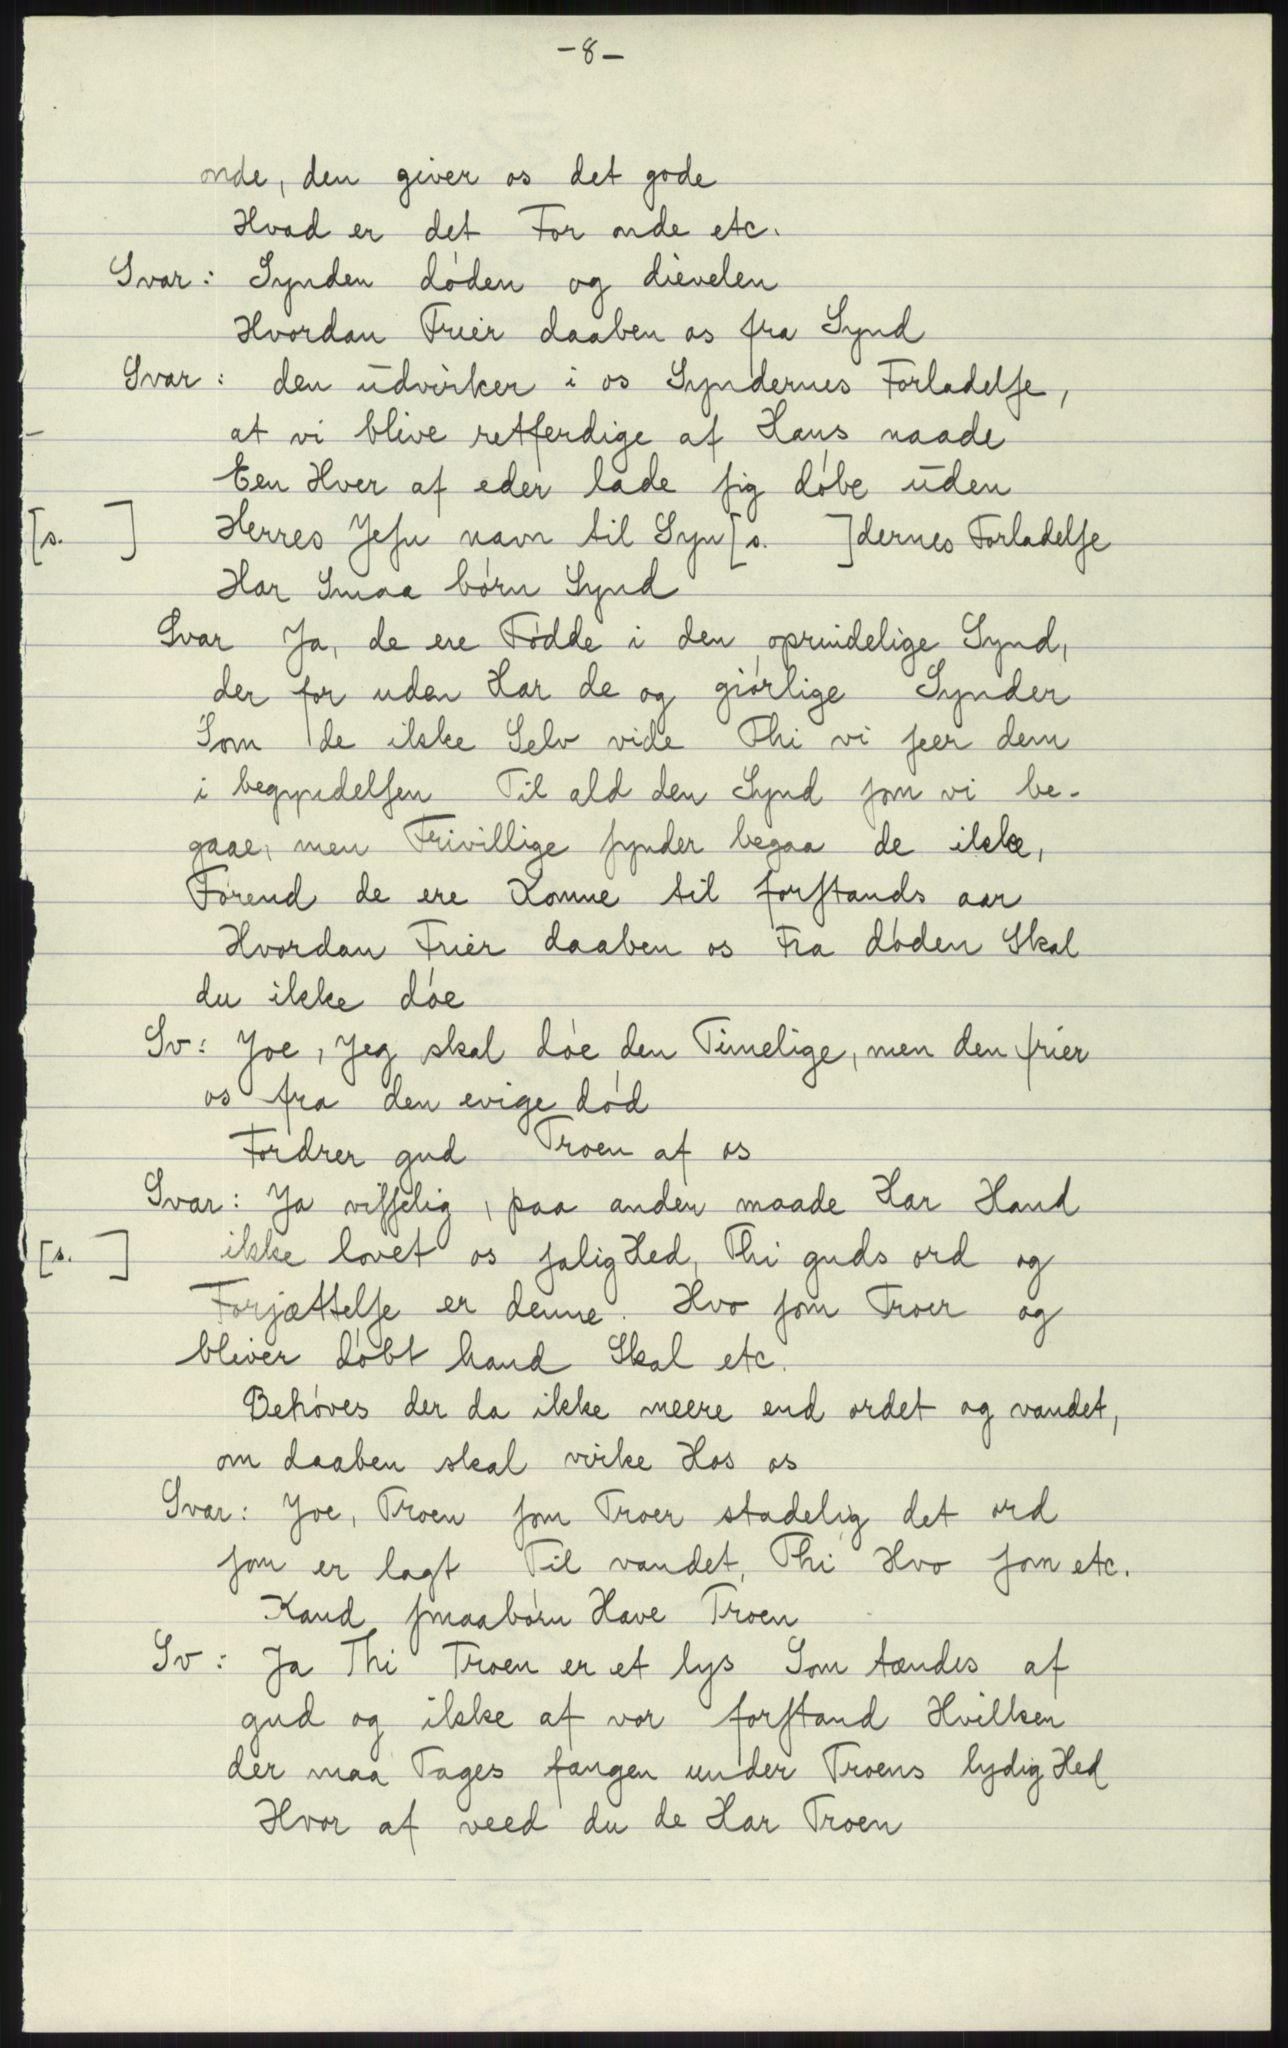 -8-
onde, den giver os det gode
Hvad er det For onde etc.
Svar: Synden døden og dievelen
Hvordan Frier daaben os fra Synd
Svar: den ūdvirker i os Syndernes Forladelse,
at vi blive retferdige af Hans naade
Een Hver af eder lade sig døbe ūden
[s. ] Herres Jesu navn til Syn[s. ]dernes Forladelse
Har Smaa børn Synd
Svar Ja, de ere Fødde i den oprindelige Synd,
der for uden Har de og giørlige Synder
Som de ikke Selv vide Thi vi seer dem
i begyndelsen Til ald den Synd som vi be-
gaae, men Frivillige synder begaa de ikke,
Førend de ere Komne til forstands aar
Hvordan Frier daaben os Fra døden Skal
du ikke døe
Sv: Joe, Jeg skal døe den Timelige, men den frier
os fra den evige død
Fordrer gud Troen af os
Svar: Ja visselig, paa anden maade Har Hand
[s. ] ikke lovet os saligHed, Thi guds ord og
Forjættelse er denne. Hvo som Troer og
bliver døbt hand Skal etc.
Behøves der da ikke meere end ordet og vandet,
om daaben skal virke Hos os
Svar: Joe, Troen som Troer stadelig det ord
som er lagt Til vandet, Thi Hvo som etc.
Kand smaabørn Have Troen
Sv: Ja Thi Troen er et lys Som tændes af
gud og ikke af vor forstand Hvilken
der maa Tages fangen under Troens lydigHed
Hvor af veed du de Har Troen